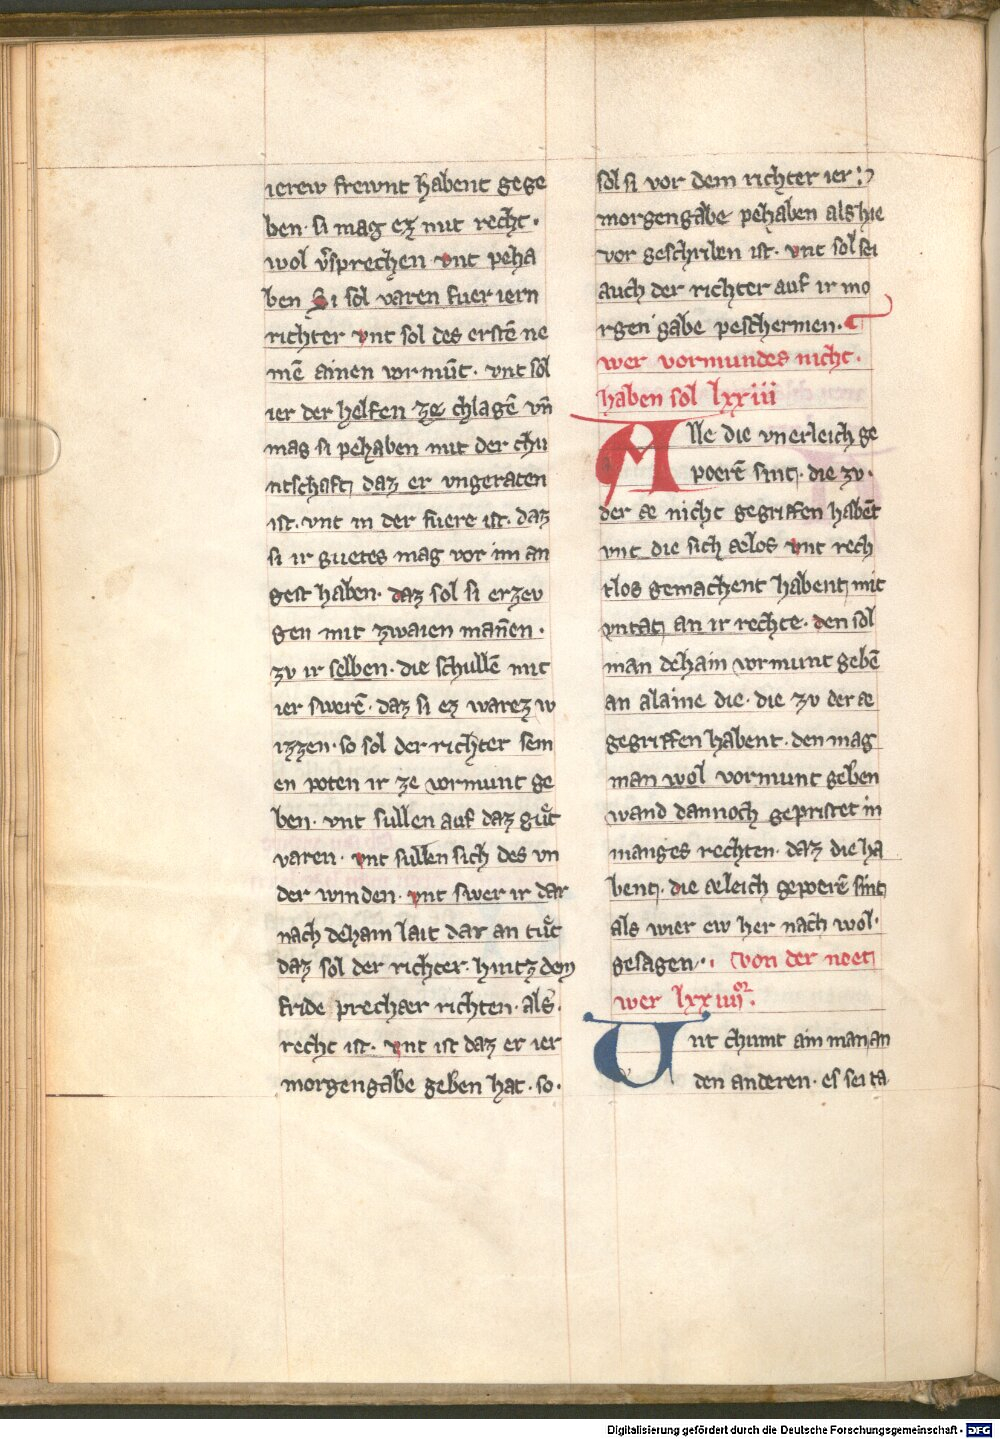 ierew frewnt habent gege
ben· si mag ez mit recht·
wol v̄sprechen vnt peha
ben Si sol varen fuer iern
richter vnt sol des erstē ne
mē ainen vormūt· vnt sol
ier der helfen ze chlagē vn̄
mag si pehaben mit der chu
ntschaft daz er vngeraten
ist· vnt in der fuere ist· daz
si ir guetes mag vor im an
gest haben· daz sol si erzev
gen mit zwaien man̄en·
zv ir selben· die schullē mit
ier swerē· daz si ez warez w
izzen· so sol der richter sein
en poten ir ze vormunt ge
ben· vnt sullen auf daz guͤt
varen· vnt sullen sich des vn
der winden· vnt swer ir dar
nach dehain lait dar an tuͤt
daz sol der richter· hintz dem
fride prechær richten· als·
recht ist· vnt ist daz er ier
morgengabe geben hat· so·
sol si vor dem richter ier
morgengabe pehaben als hie
vor geschriben ist· vnt sol sei
auch der richter auf ir mo
rgen gabe peschermen·
wer vormundes nicht·
haben sol lxxiii
Alle die vnerleich ge
poerē sint· die zv·
der æ nicht gegriffen habēt
vnt die sich ælos vnt rech
tlos gemachent habent mit
vntat an ir rechte· den sol
man dehain vormunt gebē
an alaine die· die zv der æ
gegriffen habent· den mag
man wol vormunt geben
wand dannoch gepristet in
manges rechten· daz die ha
bent· die æleich gepoerē sint
als wier ew her nach wol·
gesagen·· von der noet
wer lxxiiii
Vnt chumt ain man an
den anderen· es sei ta
Digitalisierung gefördert durch die Deutsche Forschungsgemeinschaft - DFG